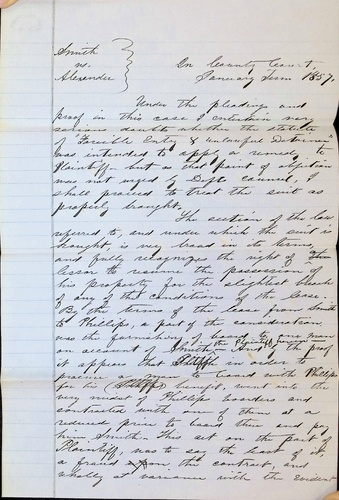 Smith
vs.
Alexander
In County Court,
January Term 1857.
Under the pleadings and
proof in this case I entertain very
serious doubts whether the statute
of "Forcible Entry & unlawful Detainer"
was intended to apply a remedy to
Plaintiff - but as that point of objection
was not urged by Defts counsel, I
shall proceed to treat the suit as
properly brought.
The section of the law
referred to, and under which the suit is
brought, is very broad in its terms
and fully recognizes the right of the
lessor to resume the possession of
his property for the slightest breach
of any of the conditions of the lease.
By the terms of the lease from Smith
to Phillips, a part of the consideration
was the furnishing of board to one man
on account of Smith the Plaintiff. By the proof
it appears that Plttff in order to
procure a man to board with Phillips
for his benefit, went into the
very midst of Phillips boarders and
contracted with one of them at a
reduced price to board there and pay
him Smith. This act on the part of
Plaintiff, was to say the least of it
a fraud upon the contract, and
wholly at variance with the evident